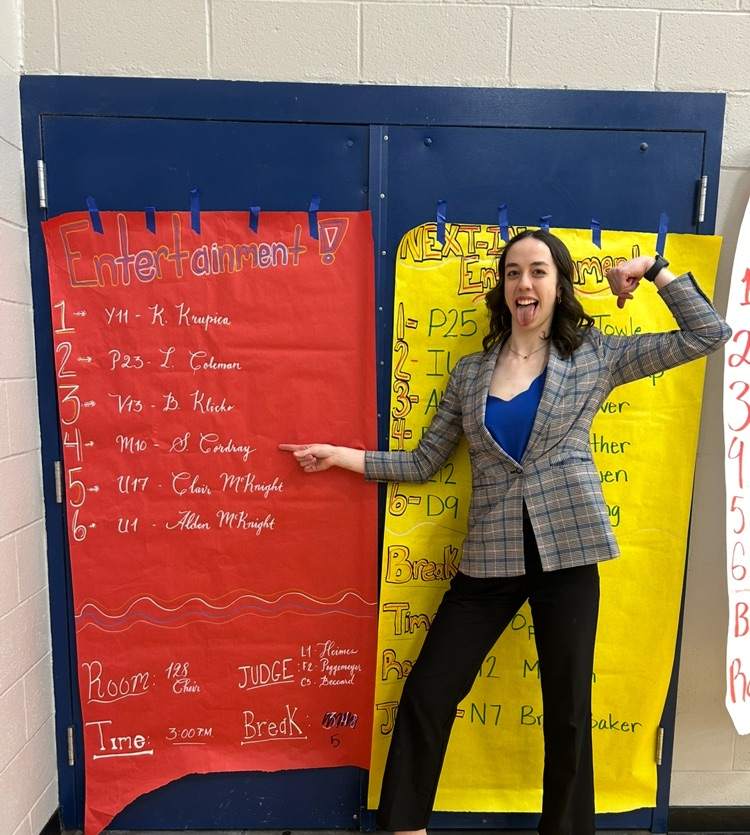 Entertainment!
1 → Y11 - K. Krupica
2 → P23 - L. Coleman
3 → V13 - B. Klicko
4 → M10 - S. Cordray
5 → U17 - Clair McKnight
6 - U1 - Alden McKnight
Room: 128
Choir
JUDGE : L1 - Heimes
: F2 - Poggemeyer
: C5 - Beccard
Time: 3:00 P.M.
Break: 5
NEXT-IN
En
1- P25 Towle
2-
3- ver
4- ther
en
6- D9 g
Break
Tim
Ro 12 M
J N7 Br baker
1
2
3
4
5
6
B
Ro